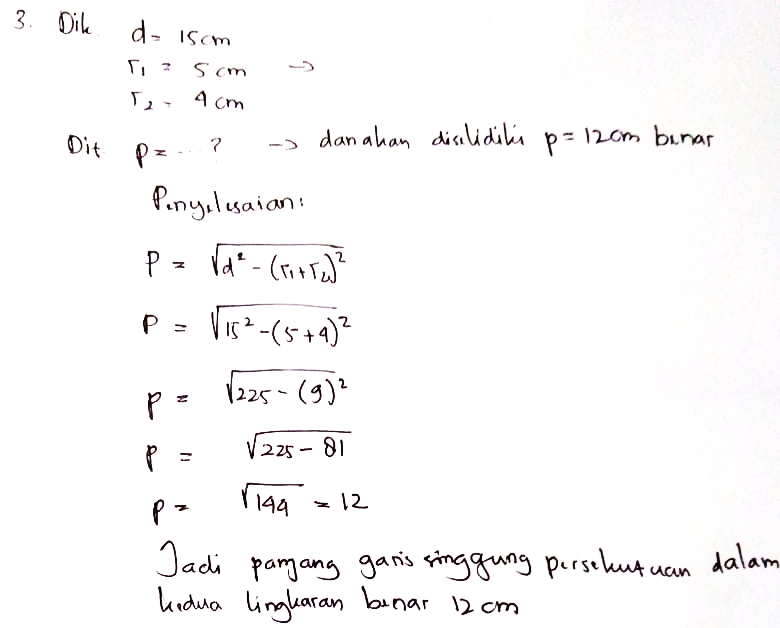 3. Dik d = 15 cm
r₁ = 5 cm →
r₂ = 4 cm
Dit p = ... ? → dan akan diselidiki p = 12 cm benar
Penyelesaian:
P = √d² - (r₁+r₂)²
P = √15² - (5+4)²
p = √225 - (9)²
p = √225 - 81
p = √144 = 12
Jadi panjang garis singgung persekutuan dalam
kedua lingkaran benar 12 cm